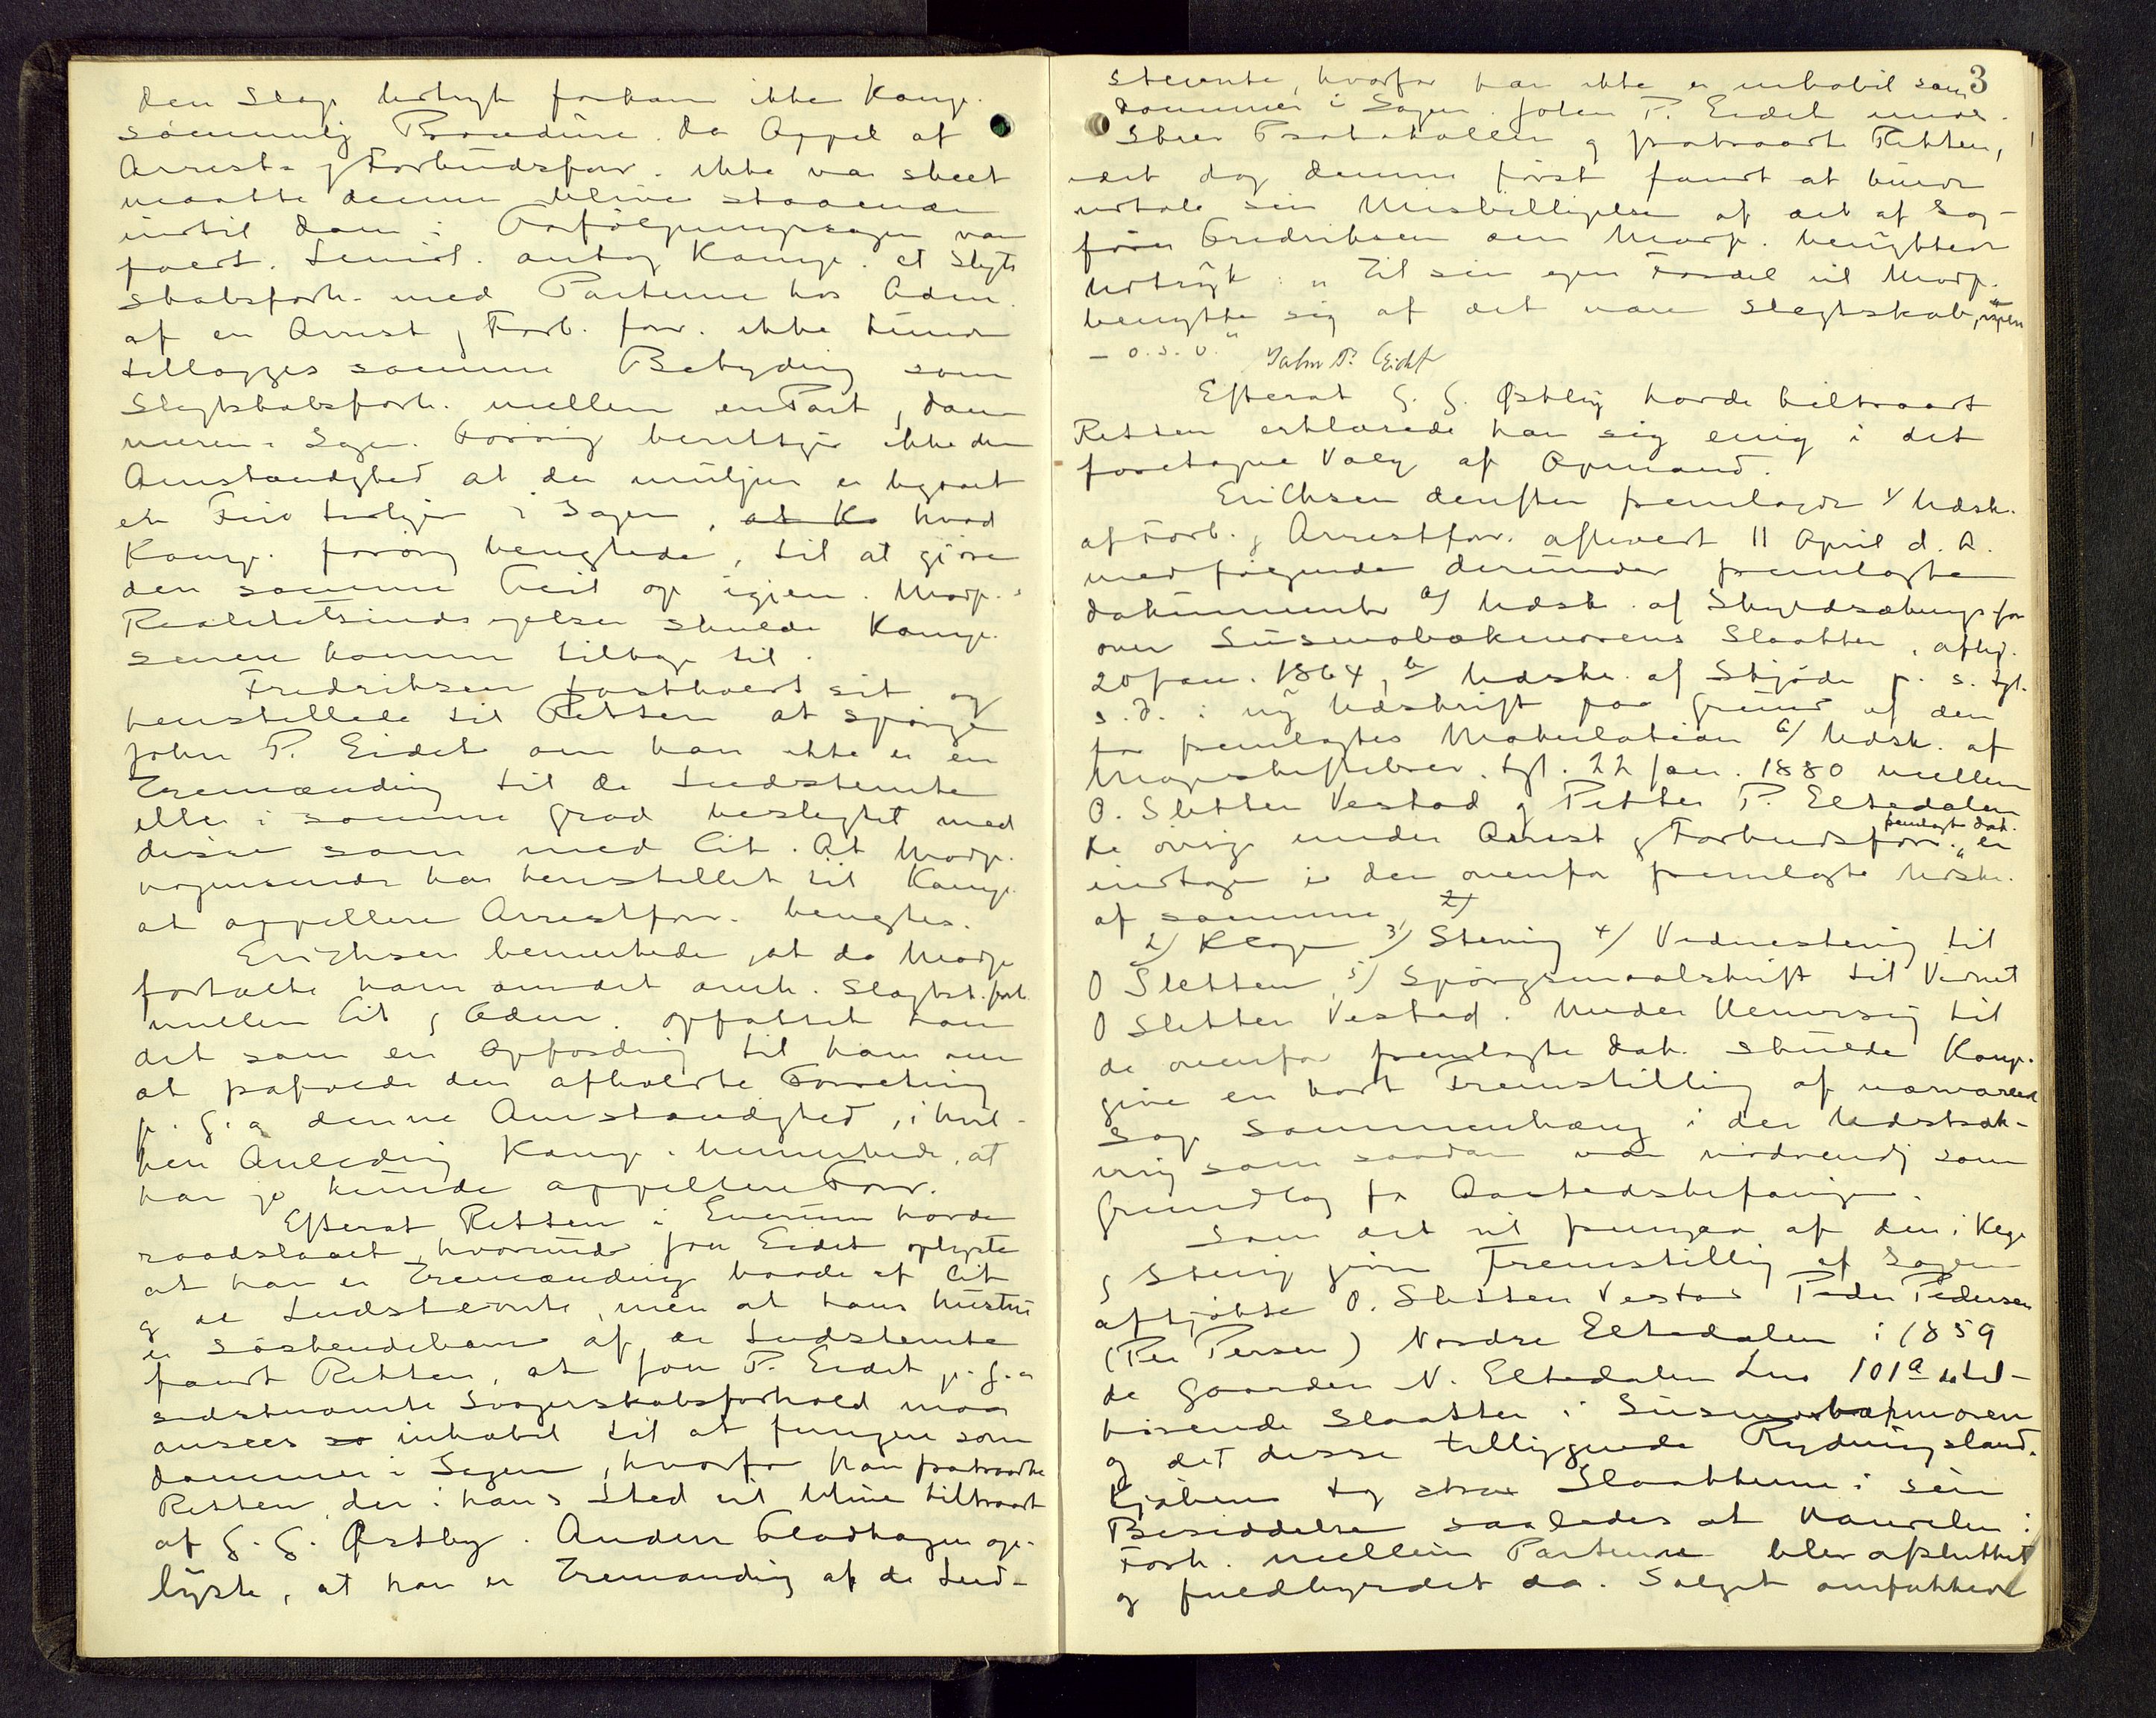 den Slags Udtryk forkom ikke Komp.
sömmelig Procedure. Da Appel af
Arrest- og Forbudsforr. ikke var skeet
maatte denne blive staaende
indtil Dom i Forfölgningssagen var
faldt. Imidl. antog Komp. at Slegt-
skabsforh. med Parterne hos Adm.
af en Arrest og Forb. forr. ikke kunde
tillægges samme Betydning som
Slegtskabsforh. mellem en Part og Dom-
meren i Sagen. Forövrig berettiger ikke den
Omstændighed at der muligens er begaaet
en Feil tidligere i Sagen, hvad
Komp. forövrig benegtede, til at gjöre
den samme Feil op igjen. Modp.s
Realitetsindsigelser skulde Komp.
senere komme tilbage til.
Fredriksen fastholdt sit og
henstillede til Retten at spörge
John P. Eidet om han ikke er en
Tremænding til de Indstevnte
eller i samme Grad beslegtet med
disse som med Cit. At Modp.
vognmand har henstillet til Komp.
at appellere Arrestforr. benegtes.
Erichsen bemerkede, at da Modp.
fortalte ham om det omh. Slegtsk. forh.
mellem Cit. og Adm. opfattet han
det som en Opfordring til ham om
at paaanke den afholdte Forretning
p. g. a. denne Omstændighed, i hvil-
ken Anledning Komp. bemerkede, at
han jo kunde appellere Forr.
Efterat Retten i Enerum havde
raadslaaet, hvorunder John Eidet oplyste
at han er Tremænding baade af Cit.
og de Indstevnte, men at hans Hustru
er Söskendebarn af de Indstevnte
fandt Retten, at John P. Eidet p. g. a.
sidstnævnte Svogerskabsforhold maa
ansees inhabil til at fungere som
Dommer i Sagen, hvorfor han fratraadte
Retten, der i hans Sted vil blive tiltraadt
af G. G. Østby. Anders Gladhagen op-
lyste, at han er Tremænding af de Ind-
3
stevnte, hvorfor han ikke er inhabil som
Dommer i Sagen. John P. Eidet under-
skrev Protokollen og fratraadte Retten,
idet dog denne först fandt at burde
udtale sin Misbilligelse af det af Sag-
förer Fredriksen om Modp. benyttede
Udtryk: "Til sin egen Fordel vil Modp.
benytte sig af det nære Slegtskab, igjen"
- o. s. v."
John P. Eidet
Efterat G. G. Østby havde tiltraadt
Retten erklærede han sig enig i det
foretagne Valg af Opmand.
Erichsen derefter fremlagde 1/ Udsk.
af Forb. og Arrestforr. afhævert 11 April d. A.
medfölgende derunder fremlagte
Dokumenter a/ Udsk. af Skyldsætningsforr
over Susmobækmorens Slaatter, afhj.
20 Jan. 1864, b/ Udskr. af Skjöde p. s. tgl.
s. D. i ny Udskrift paa Grund af den
for fremlagtes Makulation c/ Udsk. af
Mageskiftebrev. tgl. 22 Jan. 1880 mellem
O. Sletten Vestad og Petter P. Eltedalen
De övrige under Arrest og Forbudsforr. fremlagte Dok. er
indtagne i den ovenfor fremlagte Udskr.
af samme,
2/ Klage 3/ Stevning 4/ Vidnestevning til
O Sletten, 5/ Spörgsmaalskrift til Vidnet
O Sletten Vestad. Under Henvisning til
de ovenfor fremlagte Dok. skulde Komp.
give en kort Fremstilling af nærværende
Sags Sammenhæng i den Udstræk-
ning som saadan var nödvendig som
Grundlag for Aastedsbefaringen.
Som det vil fremgaa af den i Klage
og Stevning givne Fremstilling af Sagen
afkjöbte O. Sletten Vestad Peder Pedersen
(Per Persen) Nordre Eltedalen i 1859
de Gaarden N. Eltedalen Lno 101a til-
hörende Slaatter i Susmobækmoren
og det disse tilliggende Rydningsland.
Kjöberen tog strax Slaatterne i sin
Besiddelse saaledes at Handelen i
Forh. mellem Parterne blev afsluttet
og fuldbyrdet da. Salget omfattede